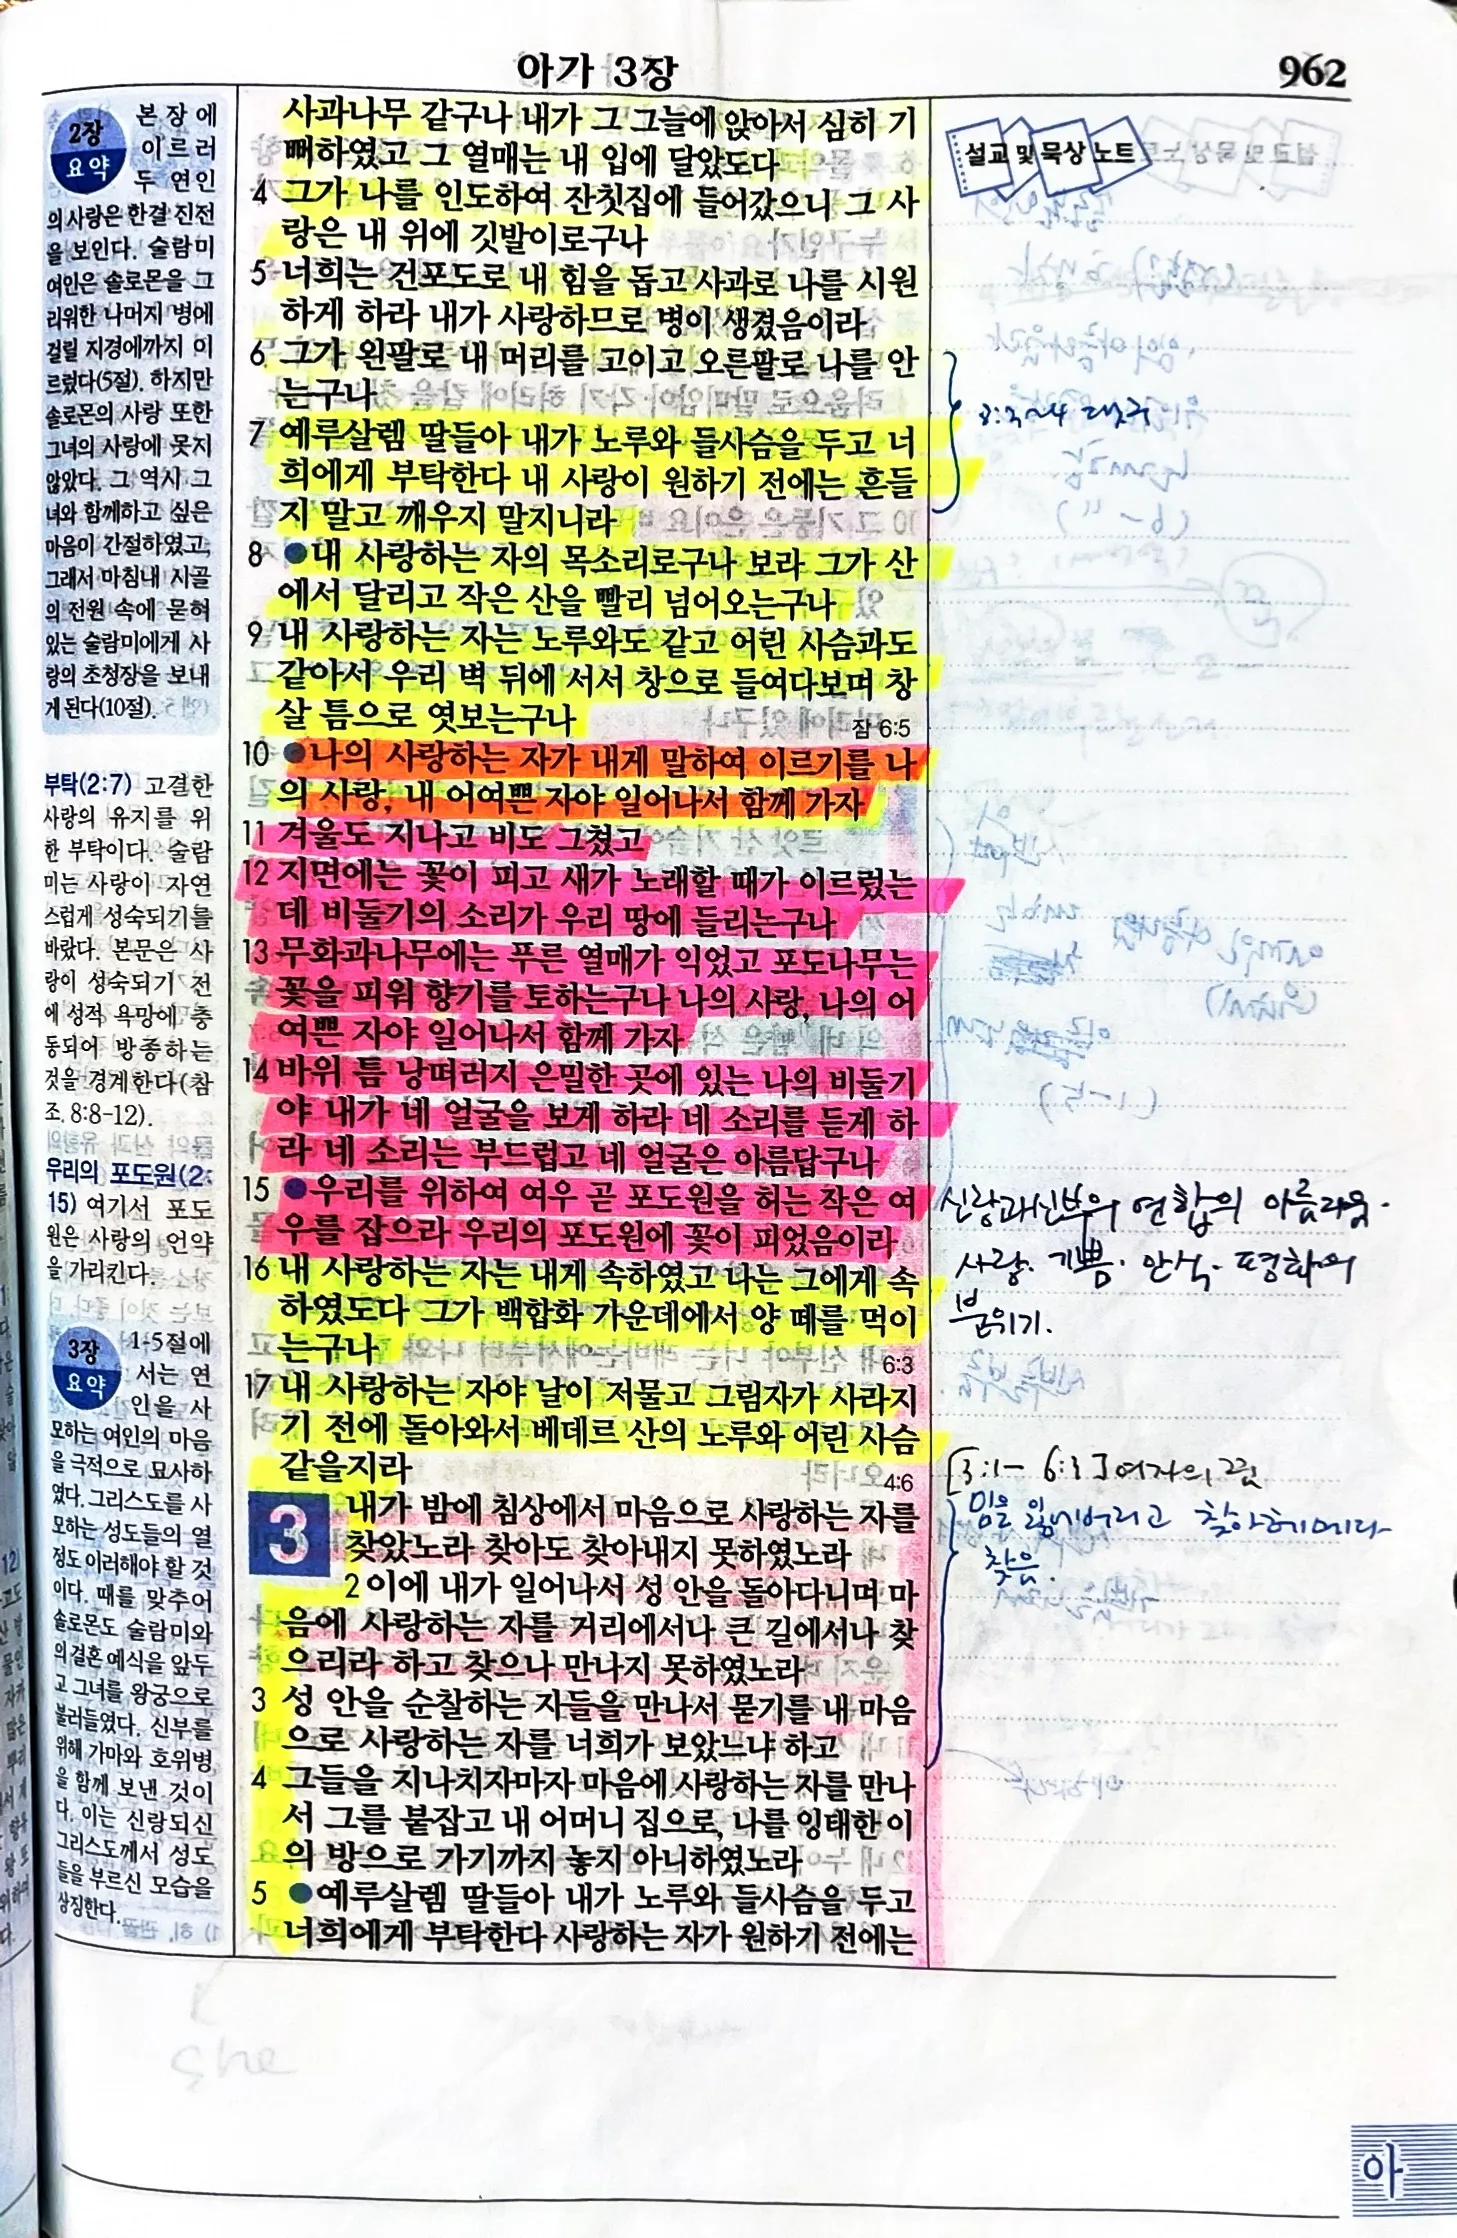 아가 3장
962
2장
요약
본 장에
이르러
두 연인
의 사랑은 한결 진전
을 보인다. 술람미
여인은 솔로몬을 그
리워한 나머지 병에
걸릴 지경에까지 이
르렀다(5절). 하지만
솔로몬의 사랑 또한
그녀의 사랑에 못지
않았다. 그 역시 그
녀와 함께하고 싶은
마음이 간절하였고,
그래서 마침내 시골
의 전원 속에 묻혀
있는 술람미에게 사
랑의 초청장을 보내
게 된다(10절).
부탁(2:7) 고결한
사랑의 유지를 위
한 부탁이다. 술람
미는 사랑이 자연
스럽게 성숙되기를
바랐다. 본문은 사
랑이 성숙되기 전
에 성적 욕망에 충
동되어 방종하는
것을 경계한다(참
조. 8:8-12).
우리의 포도원(2:
15) 여기서 포도
원은 사랑의 언약
을 가리킨다.
3장
요약
1-5절에
서는 연
인을 사
모하는 여인의 마음
을 극적으로 묘사하
였다. 그리스도를 사
모하는 성도들의 열
정도 이러해야 할 것
이다. 때를 맞추어
솔로몬도 술람미와
의 결혼 예식을 앞두
고 그녀를 왕궁으로
불러들였다. 신부를
위해 가마와 호위병
을 함께 보낸 것이
다. 이는 신랑되신
그리스도께서 성도
들을 부르신 모습을
상징한다.
사과나무 같구나 내가 그 그늘에 앉아서 심히 기
뻐하였고 그 열매는 내 입에 달았도다
4 그가 나를 인도하여 잔칫집에 들어갔으니 그 사
랑은 내 위에 깃발이로구나
5 너희는 건포도로 내 힘을 돕고 사과로 나를 시원
하게 하라 내가 사랑하므로 병이 생겼음이라
6 그가 왼팔로 내 머리를 고이고 오른팔로 나를 안
는구나
7 예루살렘 딸들아 내가 노루와 들사슴을 두고 너
희에게 부탁한다 내 사랑이 원하기 전에는 흔들
지 말고 깨우지 말지니라
8 ●내 사랑하는 자의 목소리로구나 보라 그가 산
에서 달리고 작은 산을 빨리 넘어오는구나
9 내 사랑하는 자는 노루와도 같고 어린 사슴과도
같아서 우리 벽 뒤에 서서 창으로 들여다보며 창
살 틈으로 엿보는구나 잠 6:5
10 ●나의 사랑하는 자가 내게 말하여 이르기를 나
의 사랑, 내 어여쁜 자야 일어나서 함께 가자
11 겨울도 지나고 비도 그쳤고
12 지면에는 꽃이 피고 새가 노래할 때가 이르렀는
데 비둘기의 소리가 우리 땅에 들리는구나
13 무화과나무에는 푸른 열매가 익었고 포도나무는
꽃을 피워 향기를 토하는구나 나의 사랑, 나의 어
여쁜 자야 일어나서 함께 가자
14 바위 틈 낭떠러지 은밀한 곳에 있는 나의 비둘기
야 내가 네 얼굴을 보게 하라 네 소리를 듣게 하
라 네 소리는 부드럽고 네 얼굴은 아름답구나
15 ●우리를 위하여 여우 곧 포도원을 허는 작은 여
우를 잡으라 우리의 포도원에 꽃이 피었음이라
16 내 사랑하는 자는 내게 속하였고 나는 그에게 속
하였도다 그가 백합화 가운데에서 양 떼를 먹이
는구나 6:3
17 내 사랑하는 자야 날이 저물고 그림자가 사라지
기 전에 돌아와서 베데르 산의 노루와 어린 사슴
같을지라 4:6
3 내가 밤에 침상에서 마음으로 사랑하는 자를
찾았노라 찾아도 찾아내지 못하였노라
2 이에 내가 일어나서 성 안을 돌아다니며 마
음에 사랑하는 자를 거리에서나 큰 길에서나 찾
으리라 하고 찾으나 만나지 못하였노라
3 성 안을 순찰하는 자들을 만나서 묻기를 내 마음
으로 사랑하는 자를 너희가 보았느냐 하고
4 그들을 지나치자마자 마음에 사랑하는 자를 만나
서 그를 붙잡고 내 어머니 집으로, 나를 잉태한 이
의 방으로 가기까지 놓지 아니하였노라
5 ●예루살렘 딸들아 내가 노루와 들사슴을 두고
너희에게 부탁한다 사랑하는 자가 원하기 전에는
설교 및 묵상 노트
8:3~4 대구
신랑과 신부의 연합의 아름다움.
사랑. 기쁨. 안식. 평화의
분위기.
[3:1- 6:3] 여자의 꿈
임을 잃어버리고 찾아헤메다
찾음.
she
아